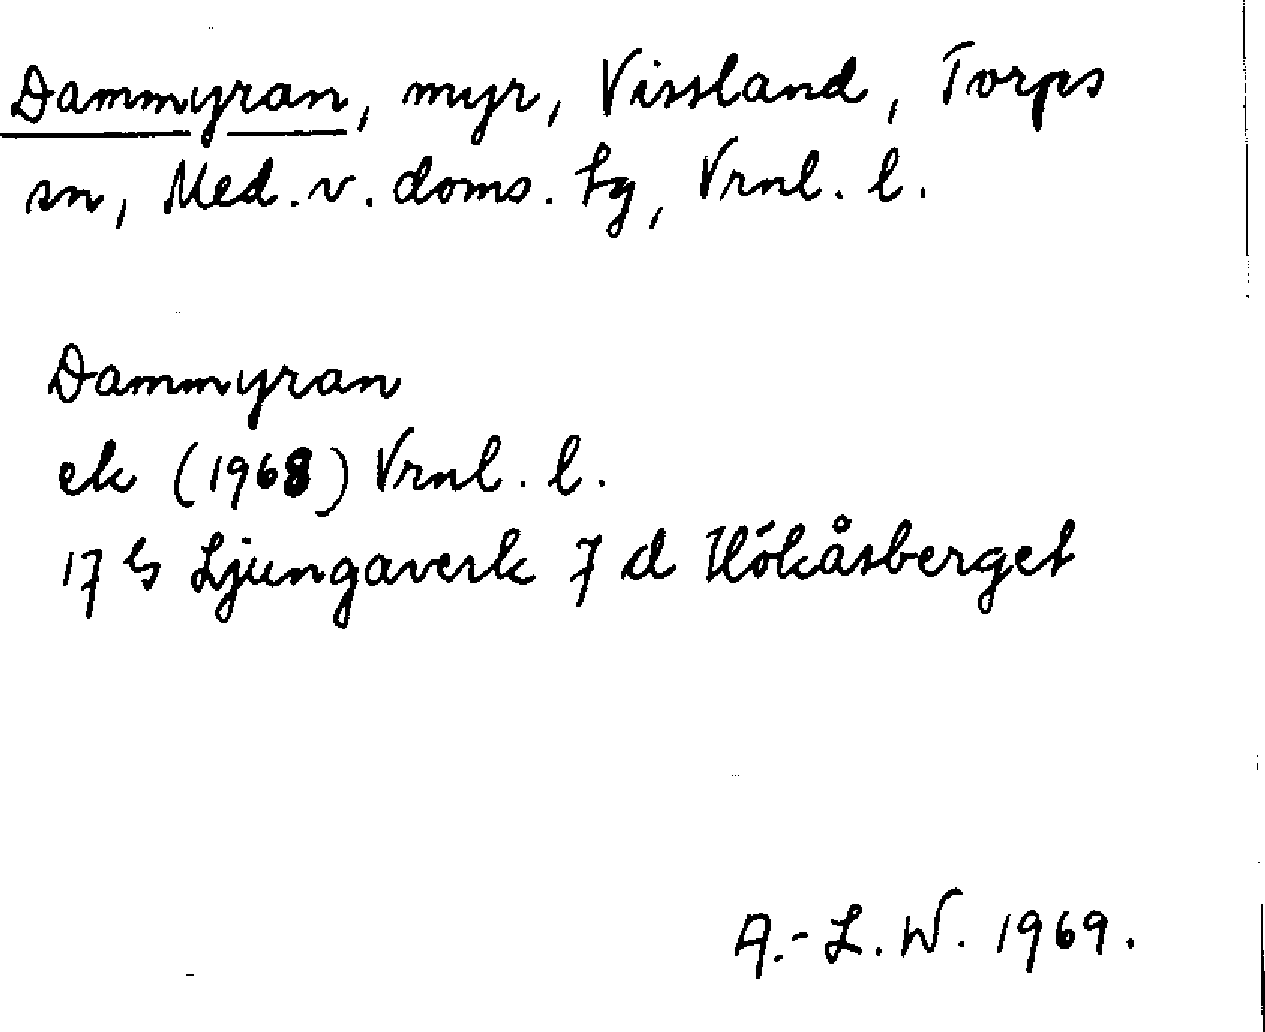 Dammyran, myr, Vissland, Torps
sn, Med. v. doms. tg, Vrnl. l.
Dammyran
ek (1968) Vrnl. l.
17 G Ljungaverk 7 d Hökåsberget
A.-L. W. 1969.